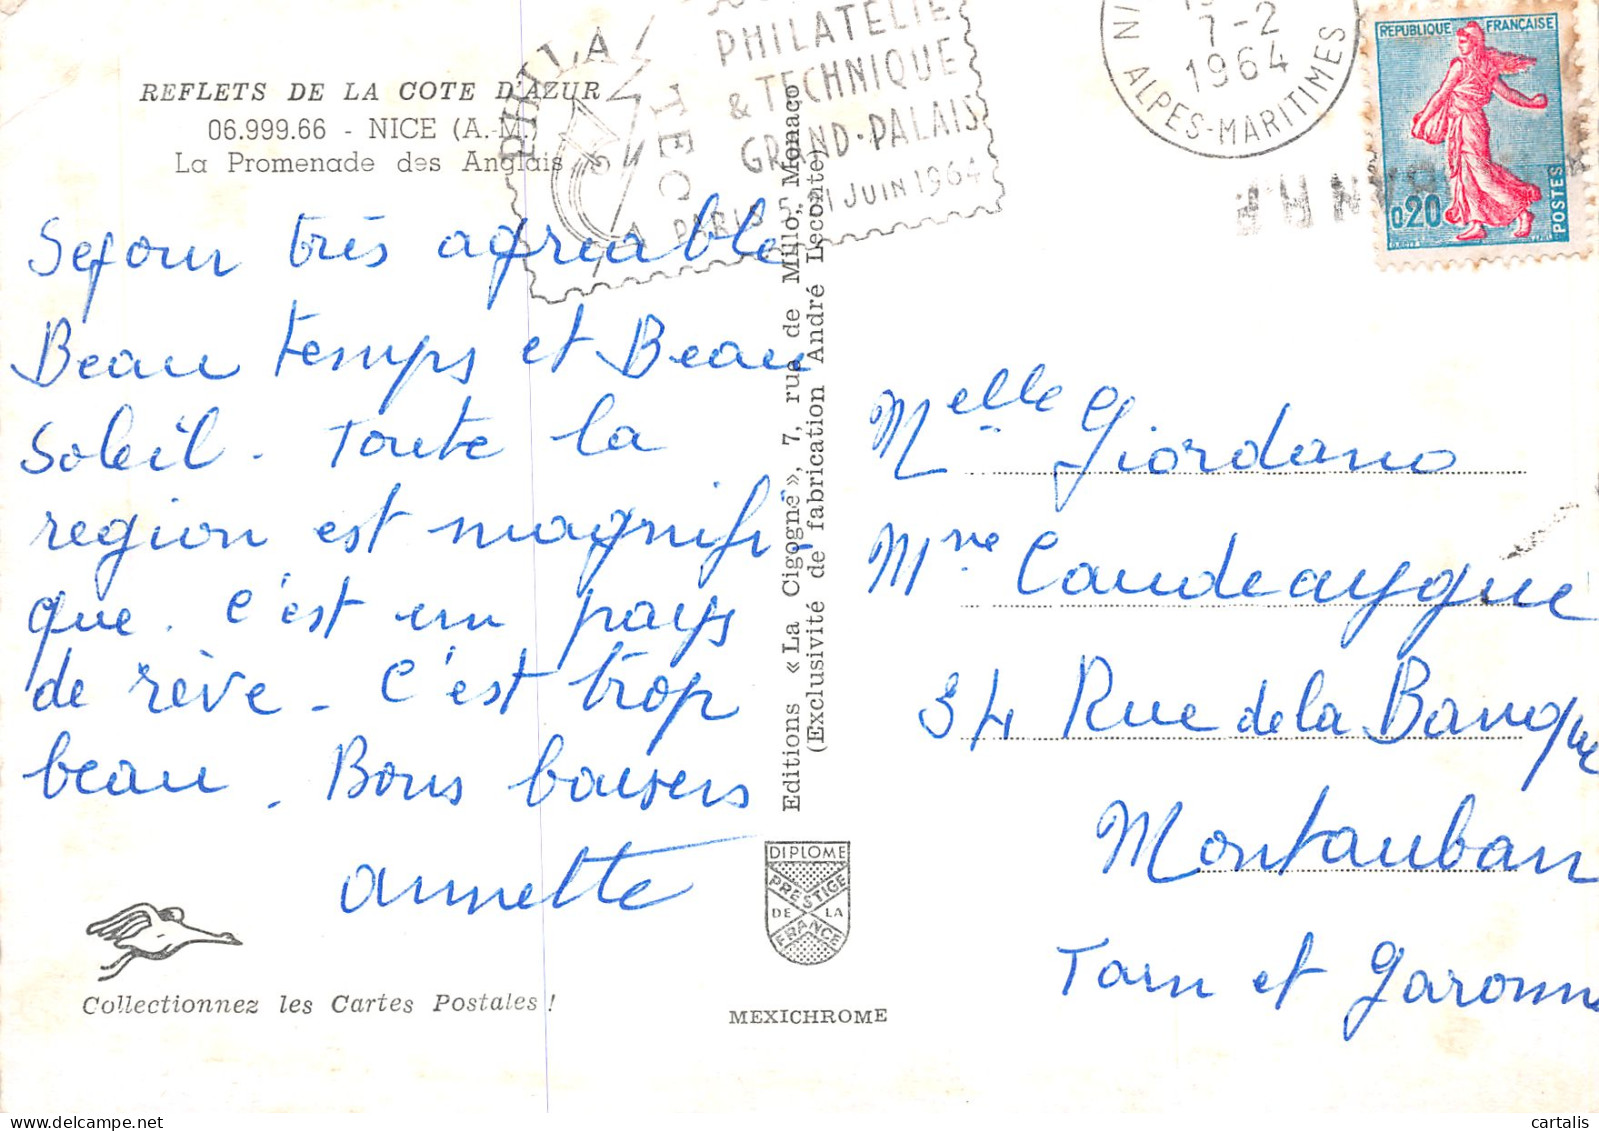 REFLETS DE LA COTE D'AZUR
06.999.66 - NICE (A.-M.)
La Promenade des Anglais
Sejour très agreable
Beau temps et Beau
Soleil. Toute la
region est magnifi-
que. C'est un pays
de rêve - C'est trop
beau. Bons baisers
annette
Collectionnez les Cartes Postales !
PHILATEC
PHILATELIE
& TECHNIQUE
GRAND-PALAIS
PARIS 5 - 21 JUIN 1964
Editions « La Cigogne », 7, rue de Millo, Monaco
(Exclusivité de fabrication André Leconte)
DIPLOME
PRESTIGE
DE LA
FRANCE
MEXICHROME
7-2
1964
ALPES-MARITIMES
REPUBLIQUE FRANÇAISE
0,20
POSTES
Melle Giordano
Mme Caudeaygue
34 Rue de la Banque
Montauban
Tarn et Garonne
www.delcampe.net
cartalis